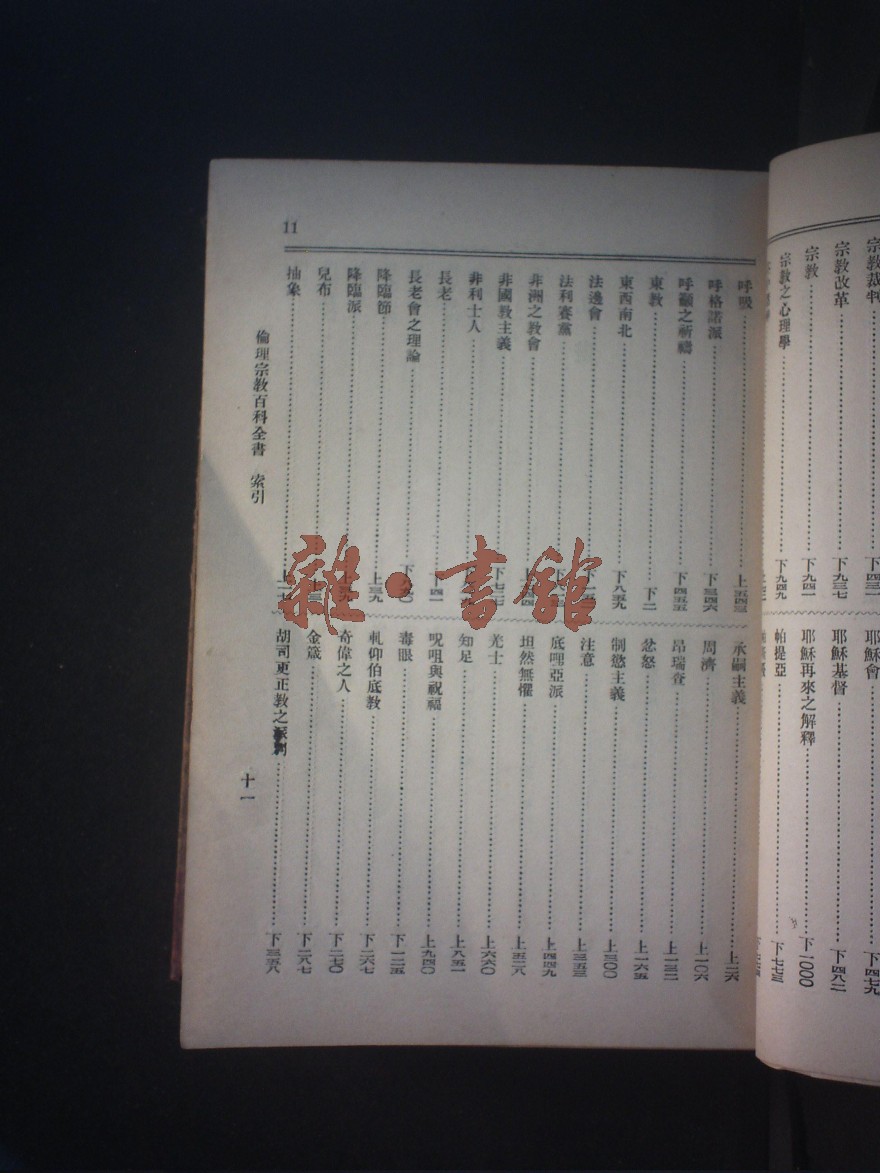 宗教裁判
宗教改革 下九三七
宗教 下九四一
宗教之心理學 下九四九
耶穌會 下四七九
耶穌基督 下四八二
耶穌再來之解釋 下一000
帕提亞 下七七三
11
呼吸 上五四三
呼格諾派 下三四六
呼籲之祈禱 下四五五
東教 下二
東西南北 下八五九
法逸會
法利賽黨
非洲之教會
非國教主義 下七二七
非利士人
長老 下四一
長老會之理論
降臨節 上三九
降臨派
兒布
抽象
承嗣主義 上二六
周濟 上一〇六
昂瑞查 上一三二
忿怒 上一六五
制慾主義 上三〇〇
注意 上三五三
底嗶亞派 上四四九
坦然無懼 上五二八
羌士 上六六〇
知足 上八五一
呪咀與祝福 上九四〇
毒眼 下一二五
軋仰伯底教 下二六七
奇偉之人 下二七〇
金箴 下二八七
胡司更正教之派別 下三五八
倫理宗教百科全書 索引
十一
雜·書館